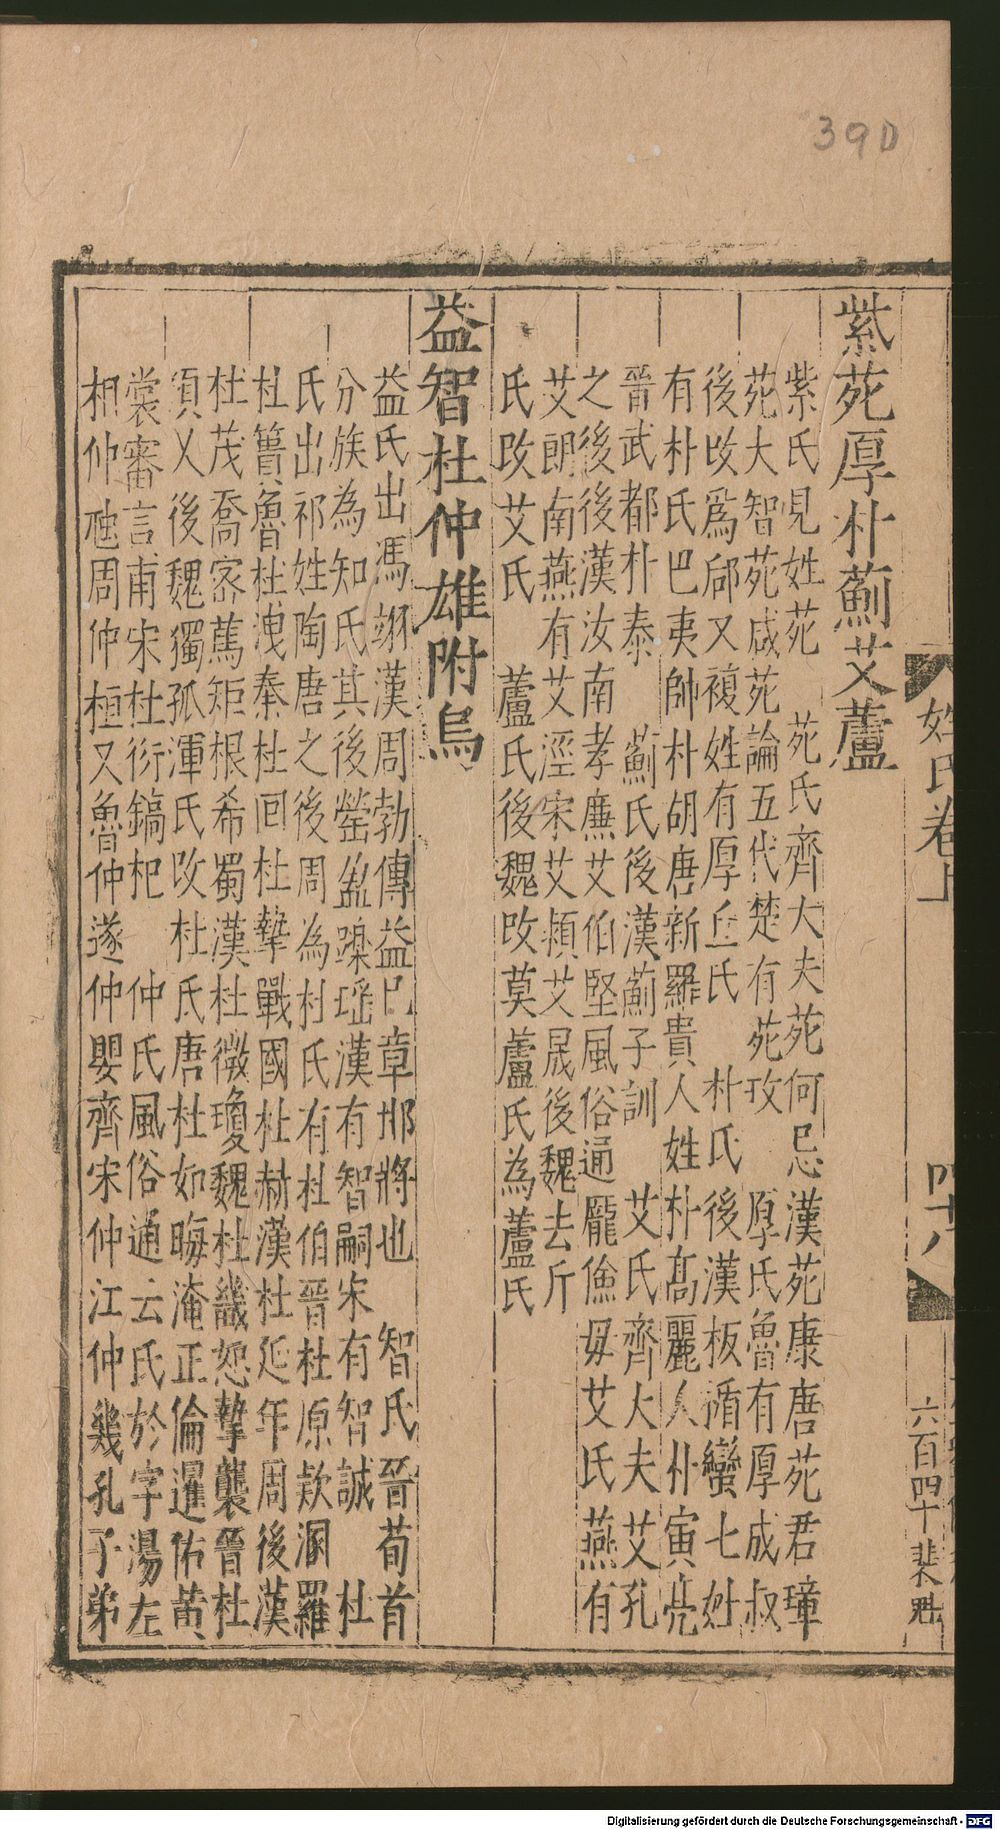 39D
紫苑厚朴薊艾蘆
紫氏見姓苑　苑氏齊大夫苑何忌漢苑康唐苑君璋
苑大智苑咸苑論五代楚有苑玫　厚氏魯有厚成叔
後改爲郈又複姓有厚丘氏　朴氏後漢板楯蠻七姓
有朴氏巴夷帥朴胡唐新羅貴人姓朴高麗人朴寅亮
晉武都朴泰　薊氏後漢薊子訓　艾氏齊大夫艾孔
之後後漢汝南孝廉艾伯堅風俗通龐儉母艾氏燕有
艾朗南燕有艾江宋艾穎艾晟後魏去斤
氏改艾氏　蘆氏後魏改莫蘆氏為蘆氏
益智杜仲雄附烏
益氏出馮翊漢周勃傳益巳章邯將也　智氏晉荀首
分族為知氏其後罃盈躒瑶漢有智嗣宋有智誠　杜
氏出祁姓陶唐之後周為杜氏有杜伯晉杜原款溷羅
杜簀魯杜洩秦杜回杜摯戰國杜赫漢杜延年周後漢
杜茂喬密篤矩根希蜀漢杜微瓊魏杜畿恕摯襲晉杜
須又後魏獨孤渾氏改杜氏唐杜如晦淹正倫暹佑黄
裳審言甫宋杜衍鎬杞　仲氏風俗通云氏於字湯左
相仲虺周仲桓又魯仲遂仲嬰齊宋仲江仲幾孔子弟
姓氏卷上
四十八
六百四十
Digitalisierung gefördert durch die Deutsche Forschungsgemeinschaft - DFG